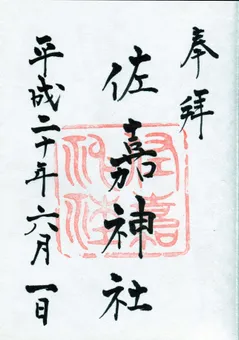 奉拜
佐嘉神社
平成二十年六月一日